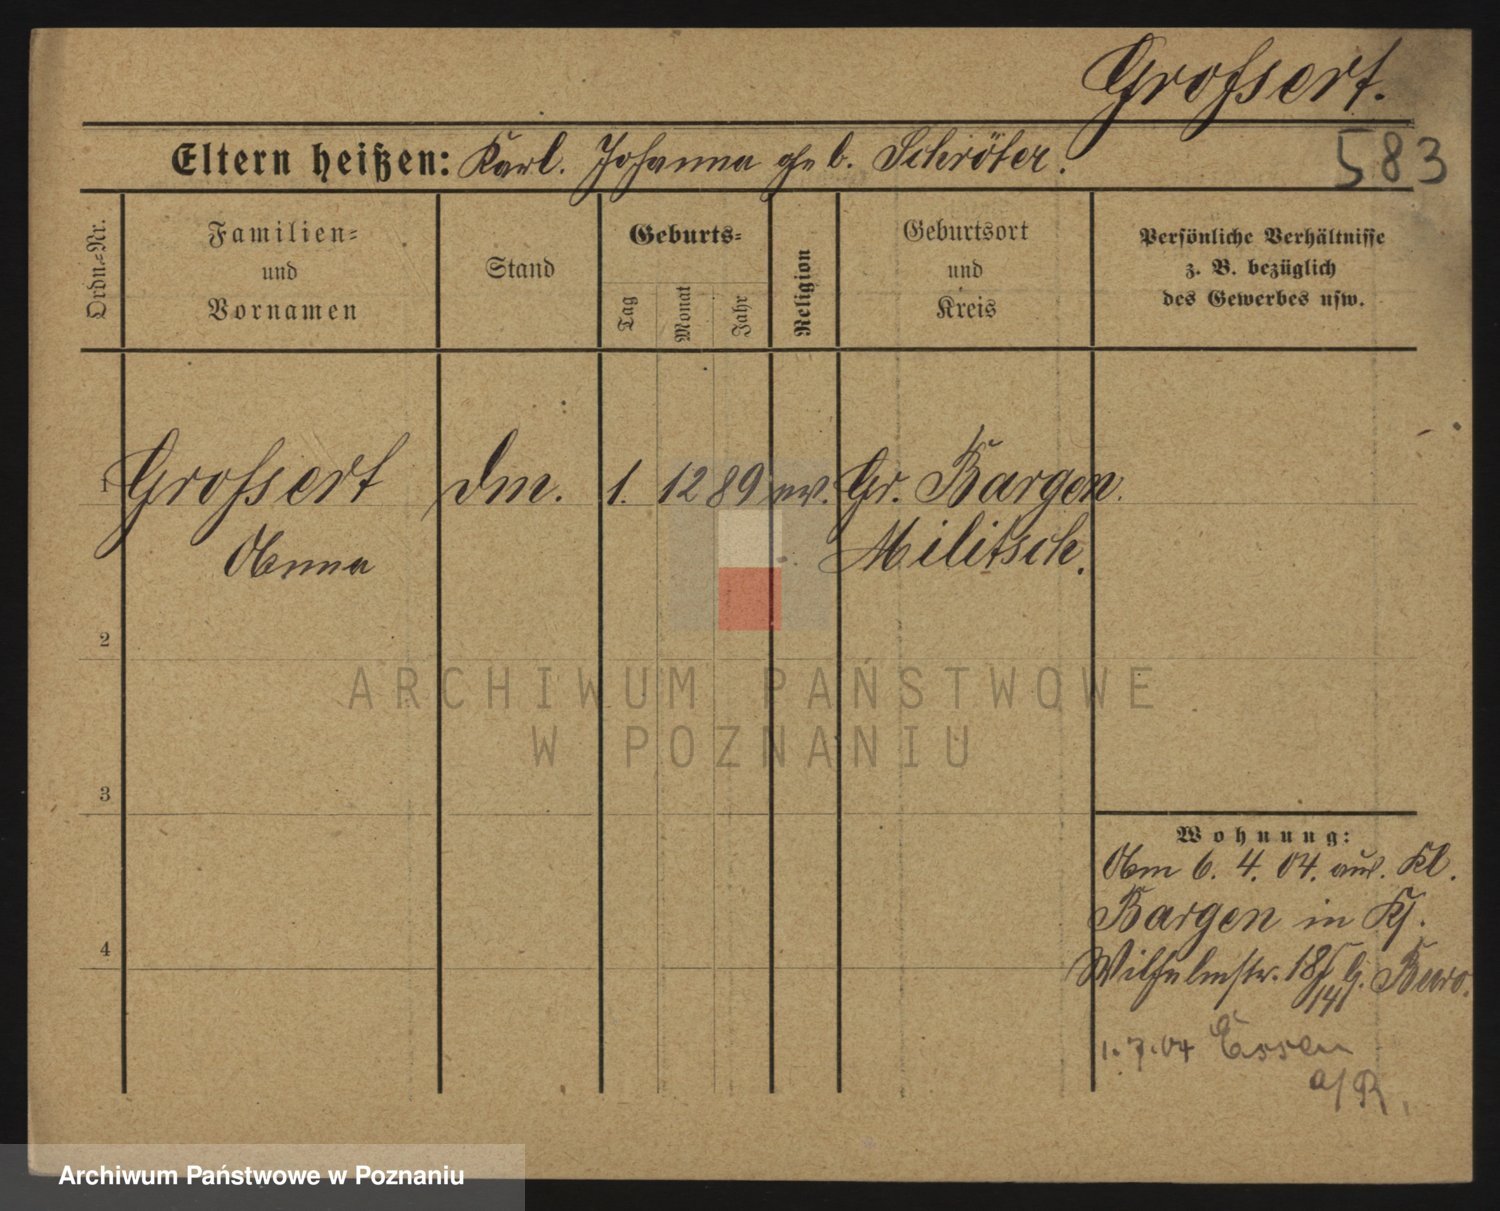 Grossert.
583
Eltern heißen: Karl. Johanna geb. Schröter.
Ordn.=Nr.
Familien=
und
Vornamen
Stand
Geburts=
Tag
Monat
Jahr
Religion
Geburtsort
und
Kreis
Persönliche Verhältnisse
z. B. bezüglich
des Gewerbes usw.
1 Grossert Dm. 1. 12 89 ev. Gr. Bargen
Anna Militsch.
2
ARCHIWUM PAŃSTWOWE
W POZNANIU
3
Wohnung:
Am 6. 4. 04. aus. Kl.
Bargen in
4
Wilhelmstr. 18 b.
1.7.04 Essen
a/R.
Archiwum Państwowe w Poznaniu